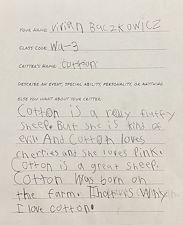 YOUR NAME: Vivian Baczkowicz
CLASS CODE: Wa-3
CRITTER'S NAME: Cotton
DESCRIBE AN EVENT, SPECIAL ABILITY, PERSONALITY, OR ANYTHING
ELSE YOU WANT ABOUT YOUR CRITTER:
Cotton is a relly fluffy
sheep. But she is kind of
evil. And Cotton loves
cherries and she loves Pink.
Cotton is a great sheep.
Cotton Was born on
the farm. That's Why
I love cotton.